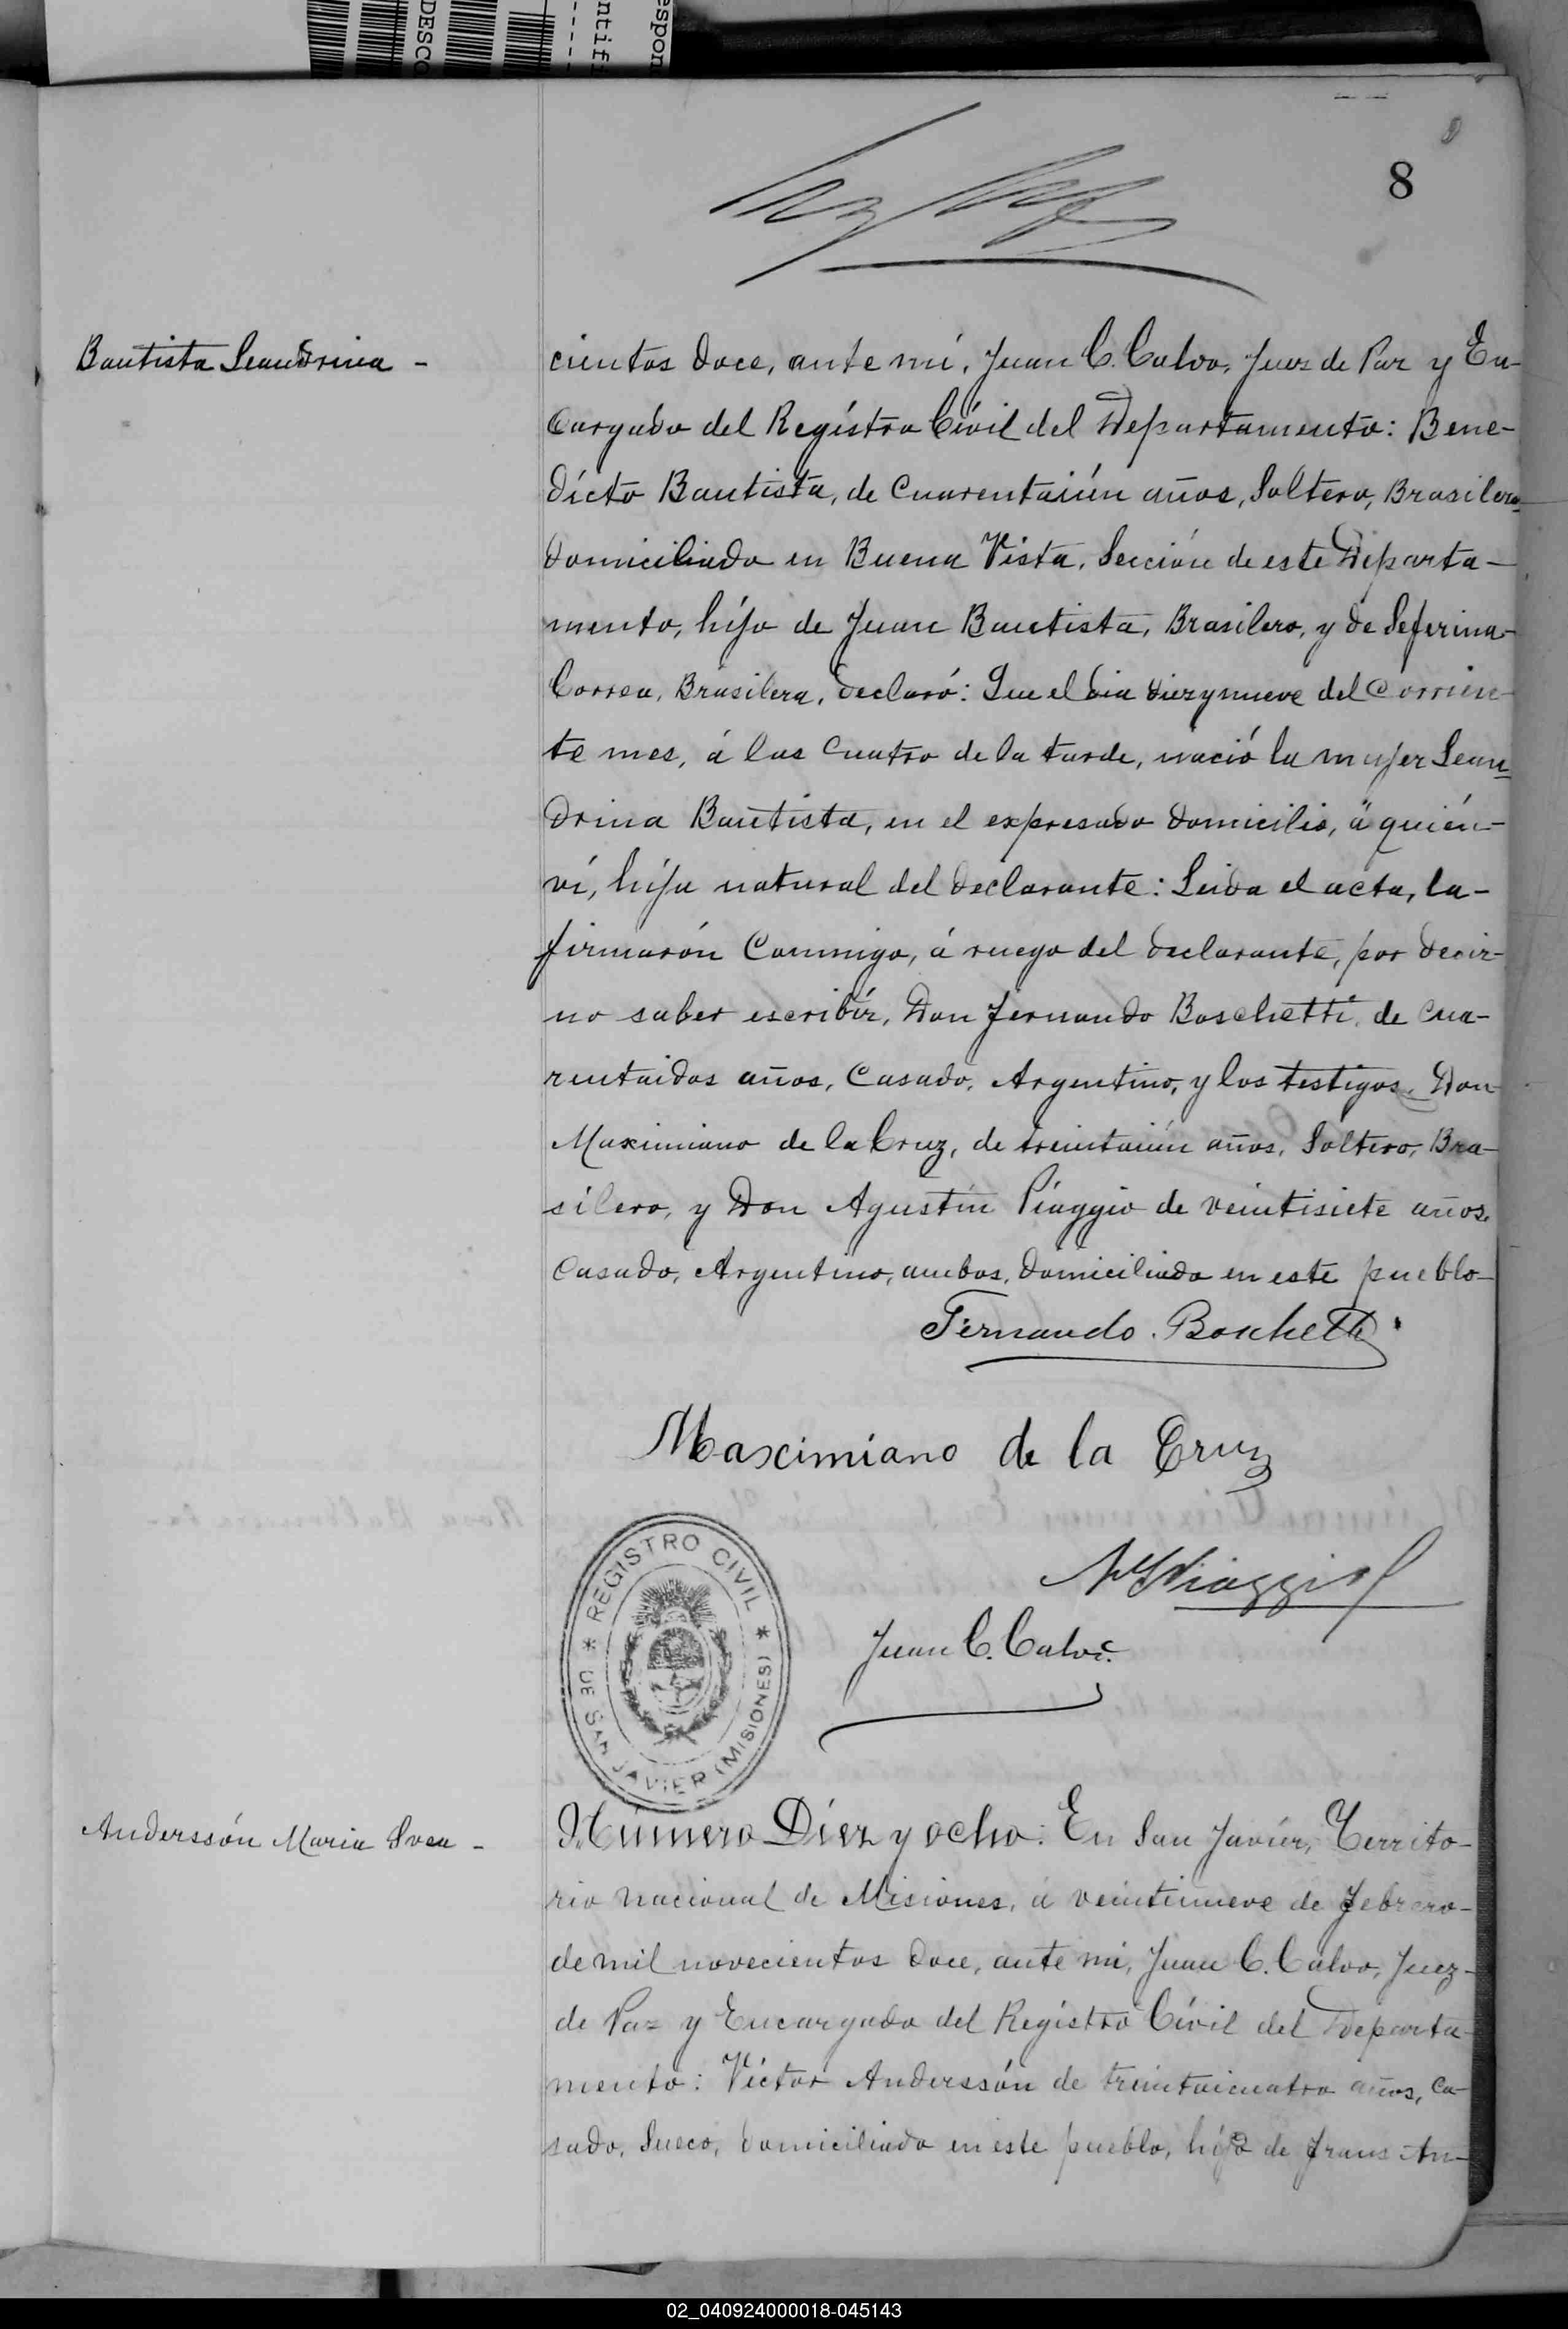 DESCO
ntifi
espon
8
Bautista Leandrina -
cientos doce, ante mí, Juan C. Calvo, Juez de Paz y En-
cargado del Regístro Cívil del Departamento: Bene-
dícto Bautista, de cuarentaiún años, Soltero, Brasilero
domiciliado en Buena Vista, Sección de este Departa-
mento, híjo de Juan Bautista, Brasilero, y de Seferina-
Correa, Brasilera, declaró: Que el dia diezynueve del corrien-
te mes, á las cuatro de la tarde, nació la mujer Lean
drina Bautista, en el expresado domicilio, á quién-
ví, híja natural del declarante: Leida el acta, la-
firmarón conmigo, á ruego del declarante, por decir-
no saber escribír, Don Fernando Boschetti, de cua-
rentaidos años, casado, Argentino, y los testigos, Don
Maximiano de la Cruz, de treintaiún años, Soltero, Bra-
silero, y Don Agustín Piaggio de veintisiete años,
casado, Argentino, ambos, domiciliado en este pueblo-
Fernando. Boschetti
Maximiano de la Cruz
Piaggio
REGISTRO CIVIL
* DE SAN JAVIER (MISIONES) *
Juan C. Calvo.
Anderssón Maria Svea -
Número Díez y ocho: En San Javiér, Territo-
rio nacional de Misiones, á veintinueve de Febrero-
de mil novecientos doce, ante mí, Juan C. Calvo, Juez-
de Paz y Encargado del Regístro Cívil del Departa-
mento: Víctor Anderssón de treintaicuatro años, ca-
sado, Sueco, domiciliado en este pueblo, híjo de Frans An-
02_040924000018-045143